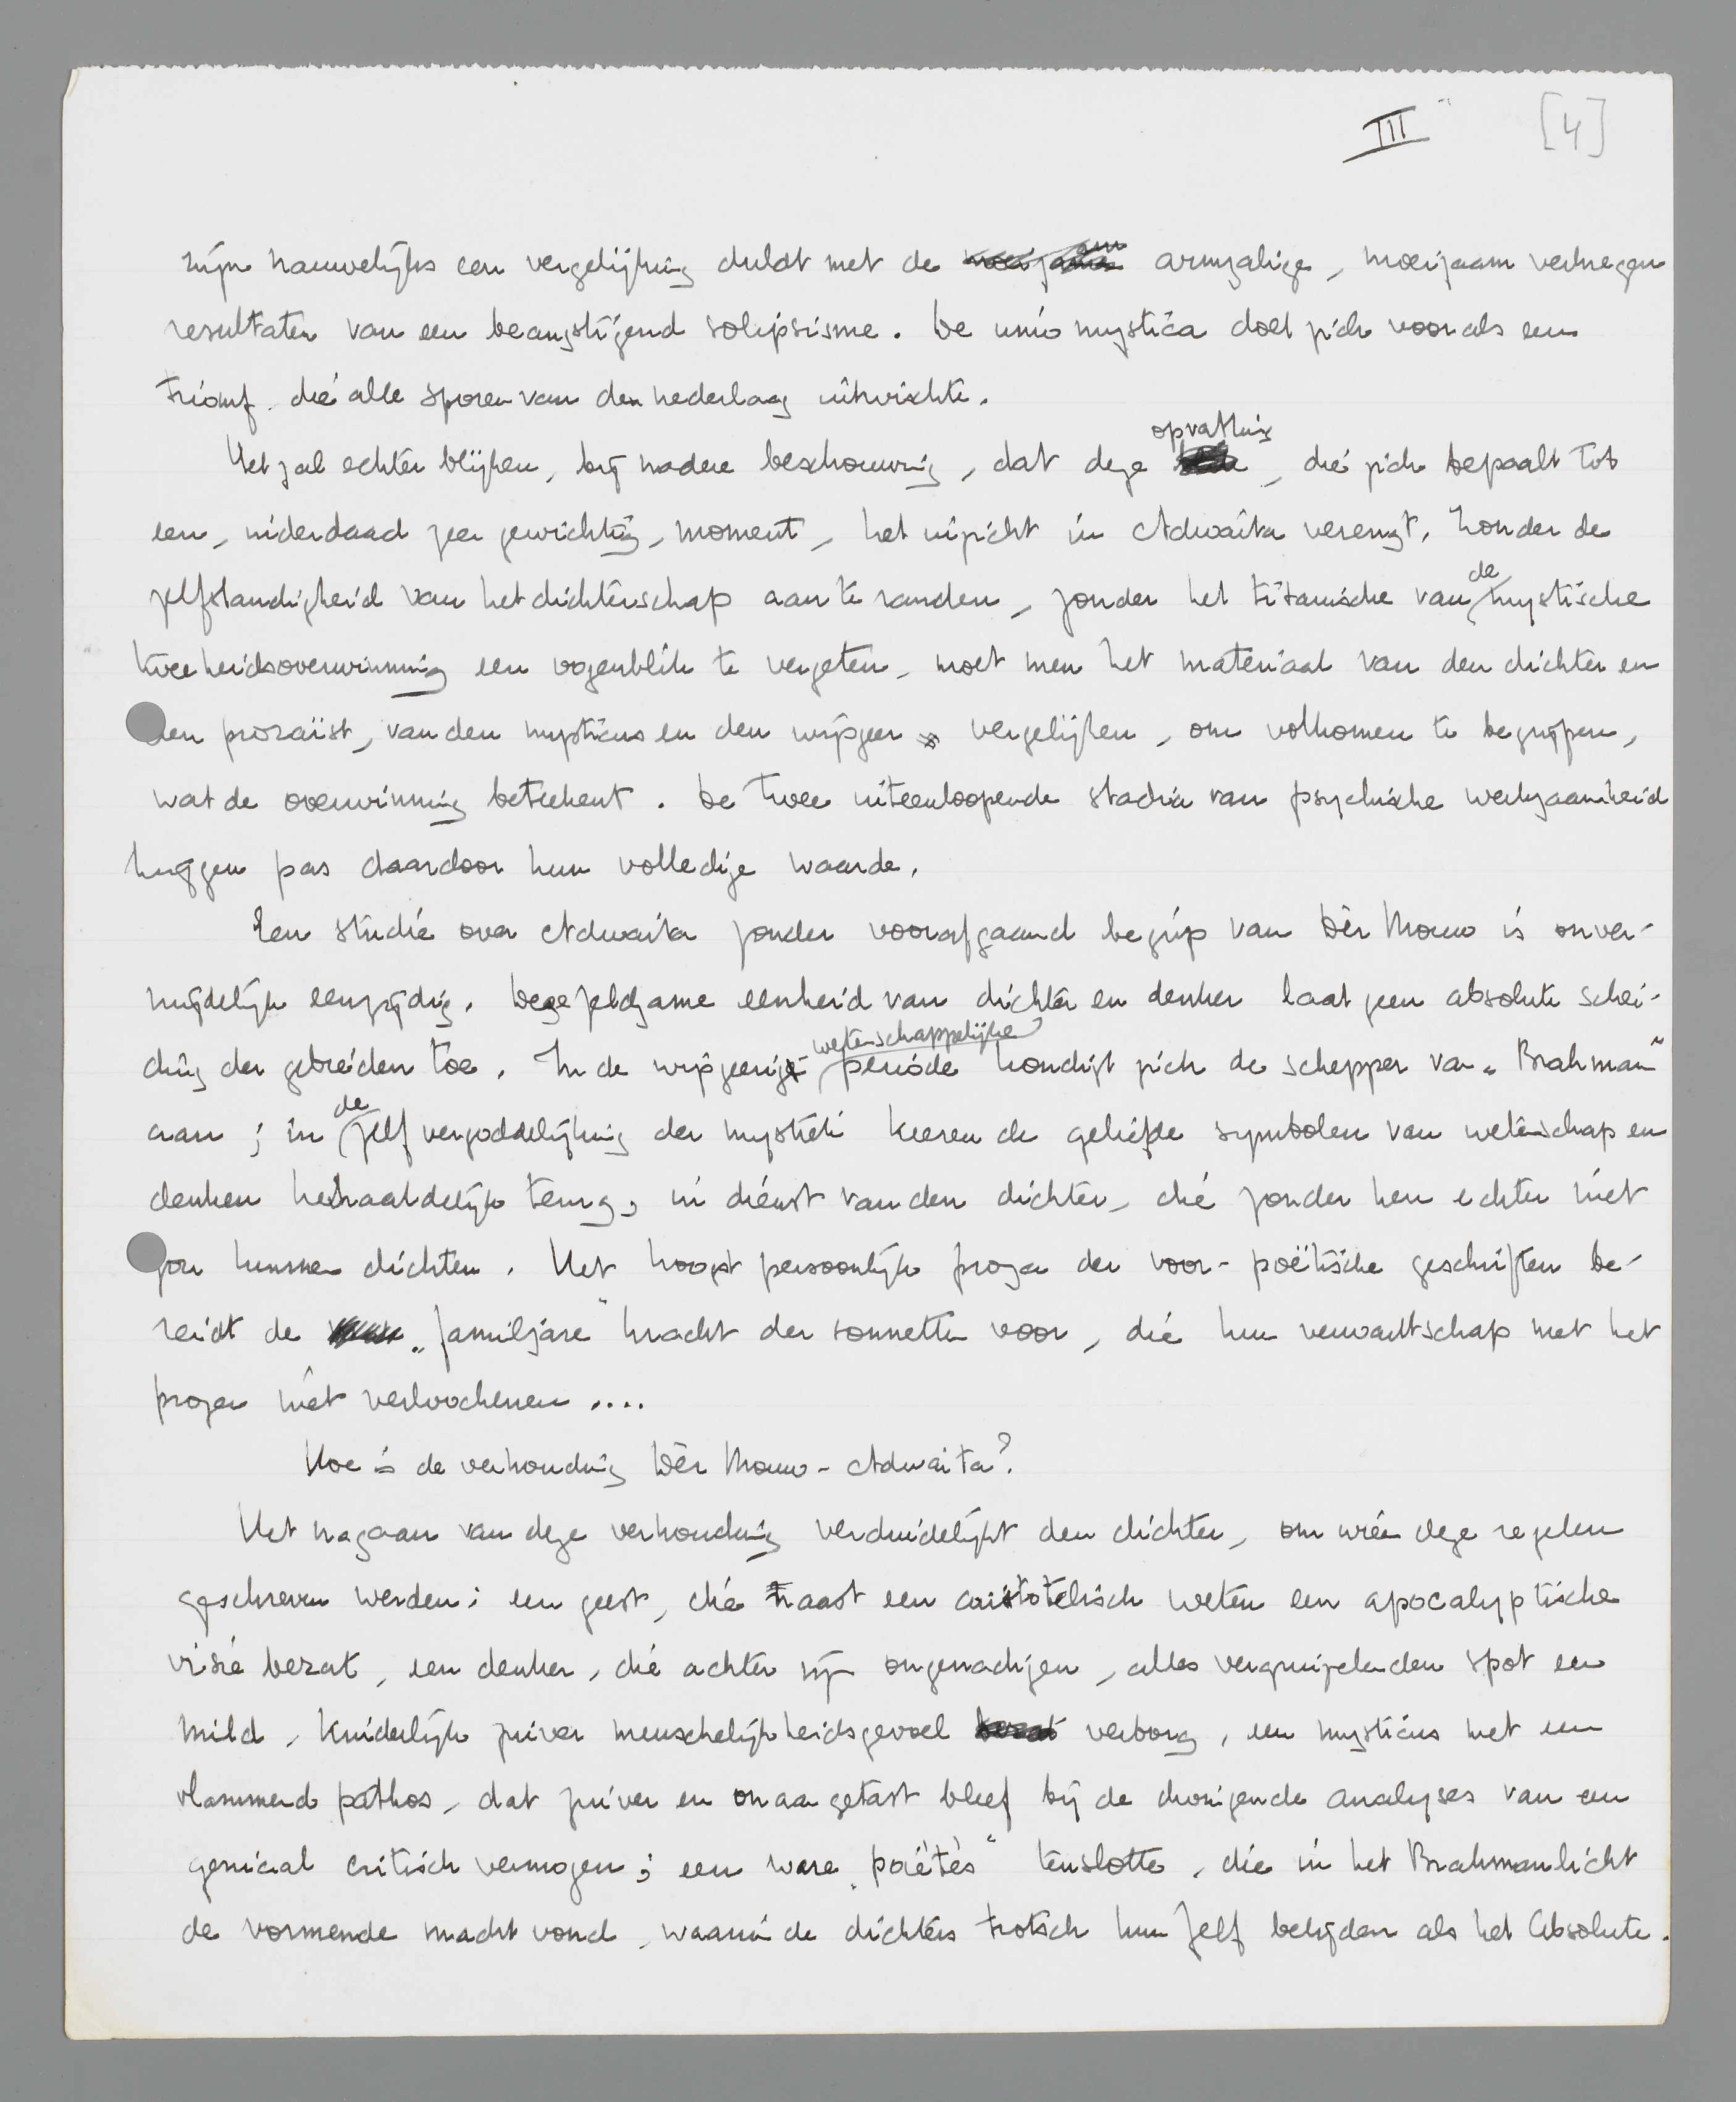 III [4]
zijn nauwelijks een vergelijking duldt met de armzalige, moeizaam verkregen
resultaten van een beangstigend solipsisme. De unio mystica doet zich voor als een
triomf die alle sporen van den nederlaag uitwischte.
Het zal echter blijken, bij nadere beschouwing, dat deze opvatting, die zich bepaalt tot
een, inderdaad zeer gewichtig, moment, het inzicht in Adwaita verengt. Zonder de
zelfstandigheid van het dichterschap aan te randen, zonder het titanische van de mystische
tweeheidsoverwinning een oogenblik te vergeten, moet men het materiaal van den dichter en
den prozaïst, van den mysticus en den wijsgeer vergelijken, om volkomen te begrijpen,
wat de overwinning beteekent. De twee uiteenloopende stadia van psychische werkzaamheid
krijgen pas daardoor hun volledige waarde.
Een studie over Adwaita zonder voorafgaand begrip van Dèr Mouw is onver-
mijdelijk eenzijdig. Deze zeldzame eenheid van dichter en denker laat geen absolute schei-
ding der gebieden toe. In de wijsgeerig-wetenschappelijke periode kondigt zich de schepper van „Brahman”
aan; in de zelfvergoddelijking der mystiek keeren de geliefde symbolen van wetenschap en
denken herhaaldelijk terug, in dienst van den dichter, die zonder hen echter niet
zou kunnen dichten. Het hoogst persoonlijk proza der voor-poëtische geschriften be-
reidt de „familjare” kracht der sonnetten voor, die hun verwantschap met het
proza niet verloochenen ....
Hoe is de verhouding Dèr Mouw - Adwaita?
Het nagaan van deze verhouding verduidelijkt den dichter, om wien deze regelen
geschreven werden: een geest, die naast een aristotelisch weten een apocalyptische
visie bezat, een denker, die achter zijn ongenadigen, alles vergruizelenden spot een
mild, kinderlijk zuiver menschelijkheidsgevoel verborg, een mysticus met een
vlammend pathos, dat zuiver en onaangetast bleef bij de dreigende analyses van een
geniaal critisch vermogen; een ware „poiètès” tenslotte, die in het Brahmanlicht
de vormende macht vond, waarin de dichters trotsch hun Zelf belijden als het Absolute.